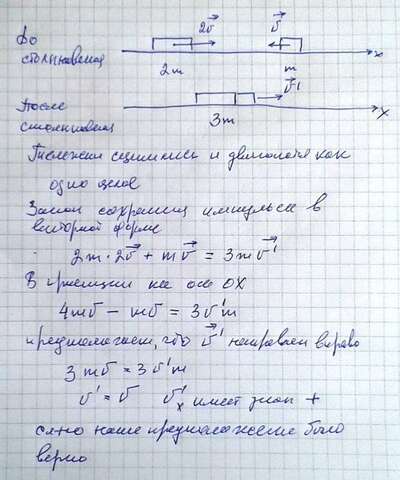 До 2v⃗ v⃗
столкновения x
2m m
После v⃗'
столкновения x
3m
Тележки сцепились и движутся как
одно целое
Закон сохранения импульса в
векторной форме
2m·2v⃗ + mv⃗ = 3mv⃗'
В проекции на ось OX
4mv - mv = 3v'm
предполагаем, что v⃗' направлен вправо
3mv = 3v'm
v' = v v'ₓ имеет знак +
сл-но наше предположение было
верно